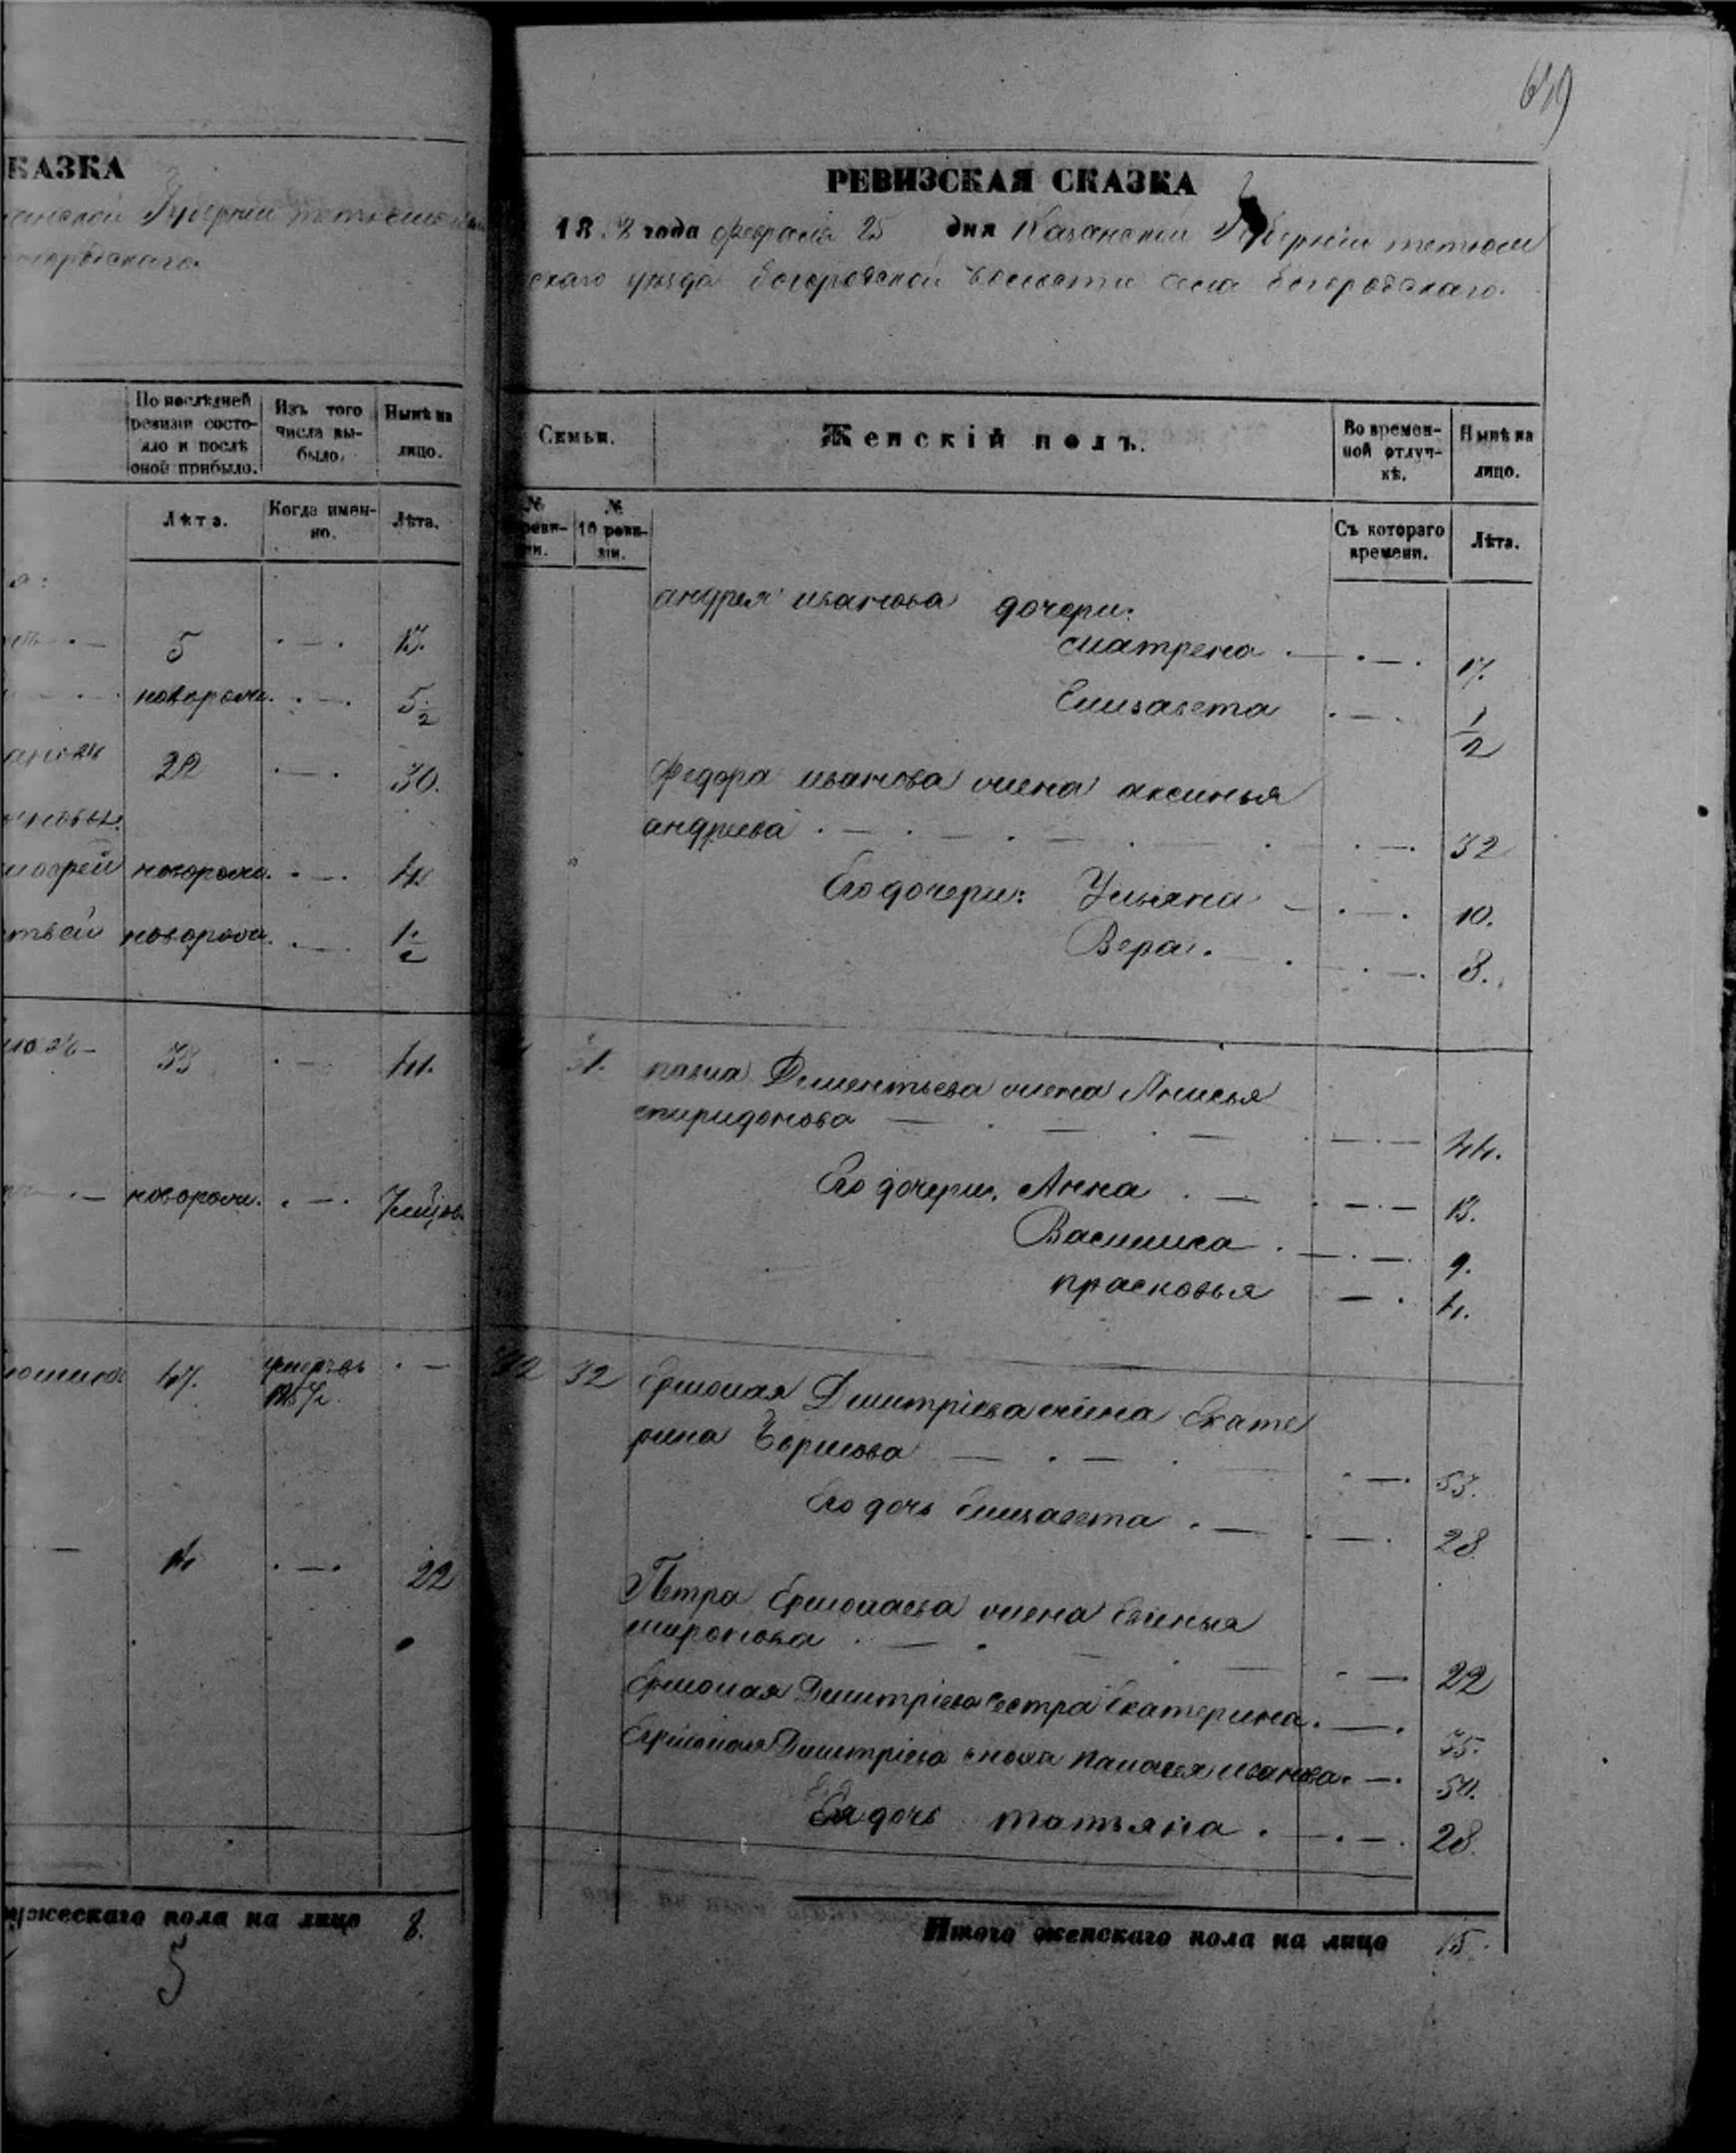 КАЗКА
Губерніи
По послѣдней ревизіи состояло и послѣ оной прибыло.
Изъ того числа выбыло.
Нынѣ на лицо.
Лѣта.
Когда именно.
Лѣта.
5 13.
новорожд. 5 1/2
22 30.
новорожд. 4
новорожд. 1 1/2
33 41.
новорожд.
47. умеръ въ
14 22
мужескаго пола на лицо 8.
5
РЕВИЗСКАЯ СКАЗКА
18 58 года февраля 25 дня Казанской Губерніи тетюш
скаго уѣзда богородской волости села богородскаго.
Семьи.
Женскій полъ.
Во времен-
ной отлуч-
кѣ.
Нынѣ на
лицо.
№ реви-
зіи.
№ 10 реви-
зіи.
Съ котораго
времени.
Лѣта.
андрея иванова дочери:
матрена 17.
Елизавета 1/2
федора иванова жена аксинья
андреева 32
Его дочери: Ульяна 10.
Вера. 8.
31. павла Дементьева жена Анисья
спиридонова 44.
Его дочери, Анна 13.
Василиса 9.
прасковья 4.
32 32 Ермолая Димитріева жена Екате
рина Борисова 53.
Его дочь Елизавета 28
Петра Ермолаева жена Евгенья
миронова 22
Ермолая Димитріева Сестра Екатерина 35.
Ермолая Димитріева сноха палагея иванова 50.
Ея дочь татьяна 28.
Итого женскаго пола на лицо 15.